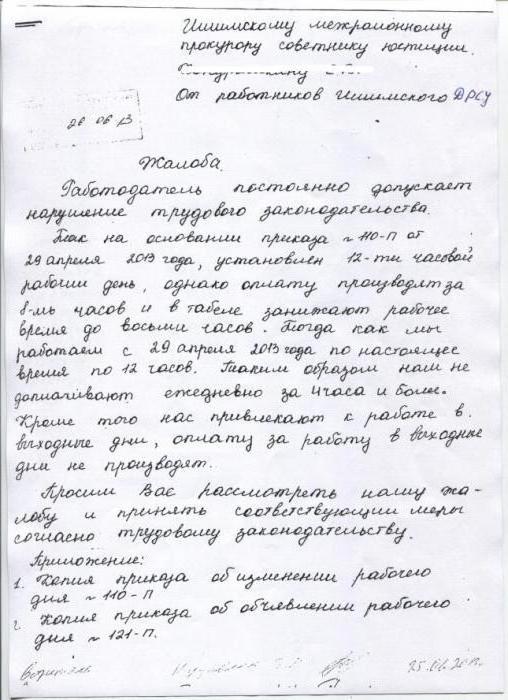 Ишимскому межрайонному
прокурору советнику юстиции.
От работников Ишимского ДРСУ
26 06 13
Жалоба.
Работодатель постоянно допускает
нарушение трудового законодательства.
Так на основании приказа ~ 110-П от
29 апреля 2013 года, установлен 12-ти часовой
рабочий день, однако оплату производят за
8-мь часов и в табеле занижают рабочее
время до восьми часов. Тогда как мы
работаем с 29 апреля 2013 года по настоящее
время по 12 часов. Таким образом нам не
доплачивают ежедневно за 4 часа и более.
Кроме того нас привлекают к работе в
выходные дни, оплату за работу в выходные
дни не производят.
Просим Вас рассмотреть нашу жа-
лобу и принять соответствующии меры
согласно трудовому законодательству.
Приложение:
1. Копия приказа об изменении рабочего
дня ~ 110-П
2. Копия приказа об объявлении рабочего
дня ~ 121-П.
25.06.2013